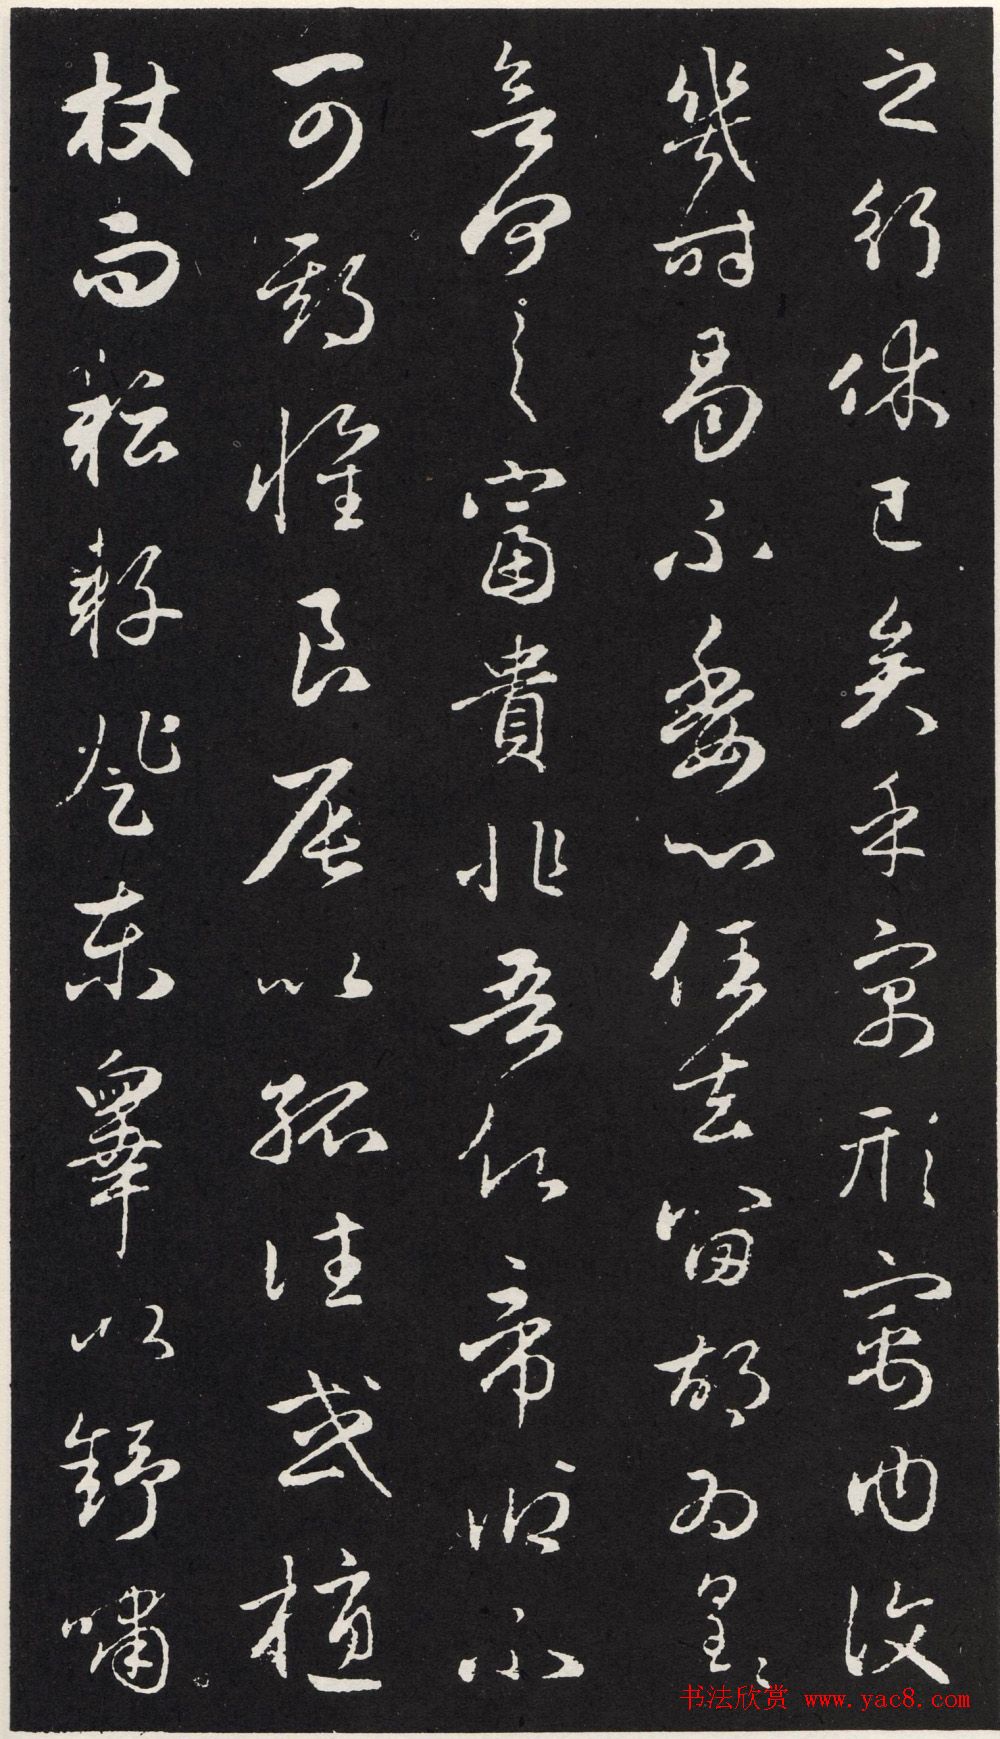 之行休已矣乎寓形寓内復
幾時曷不委心任去留胡為皇〻
何之富貴非吾願帝鄉不
可期懷良辰以孤往或植
杖而耘耔登東皋以舒嘯
书法欣赏 www.yac8.com